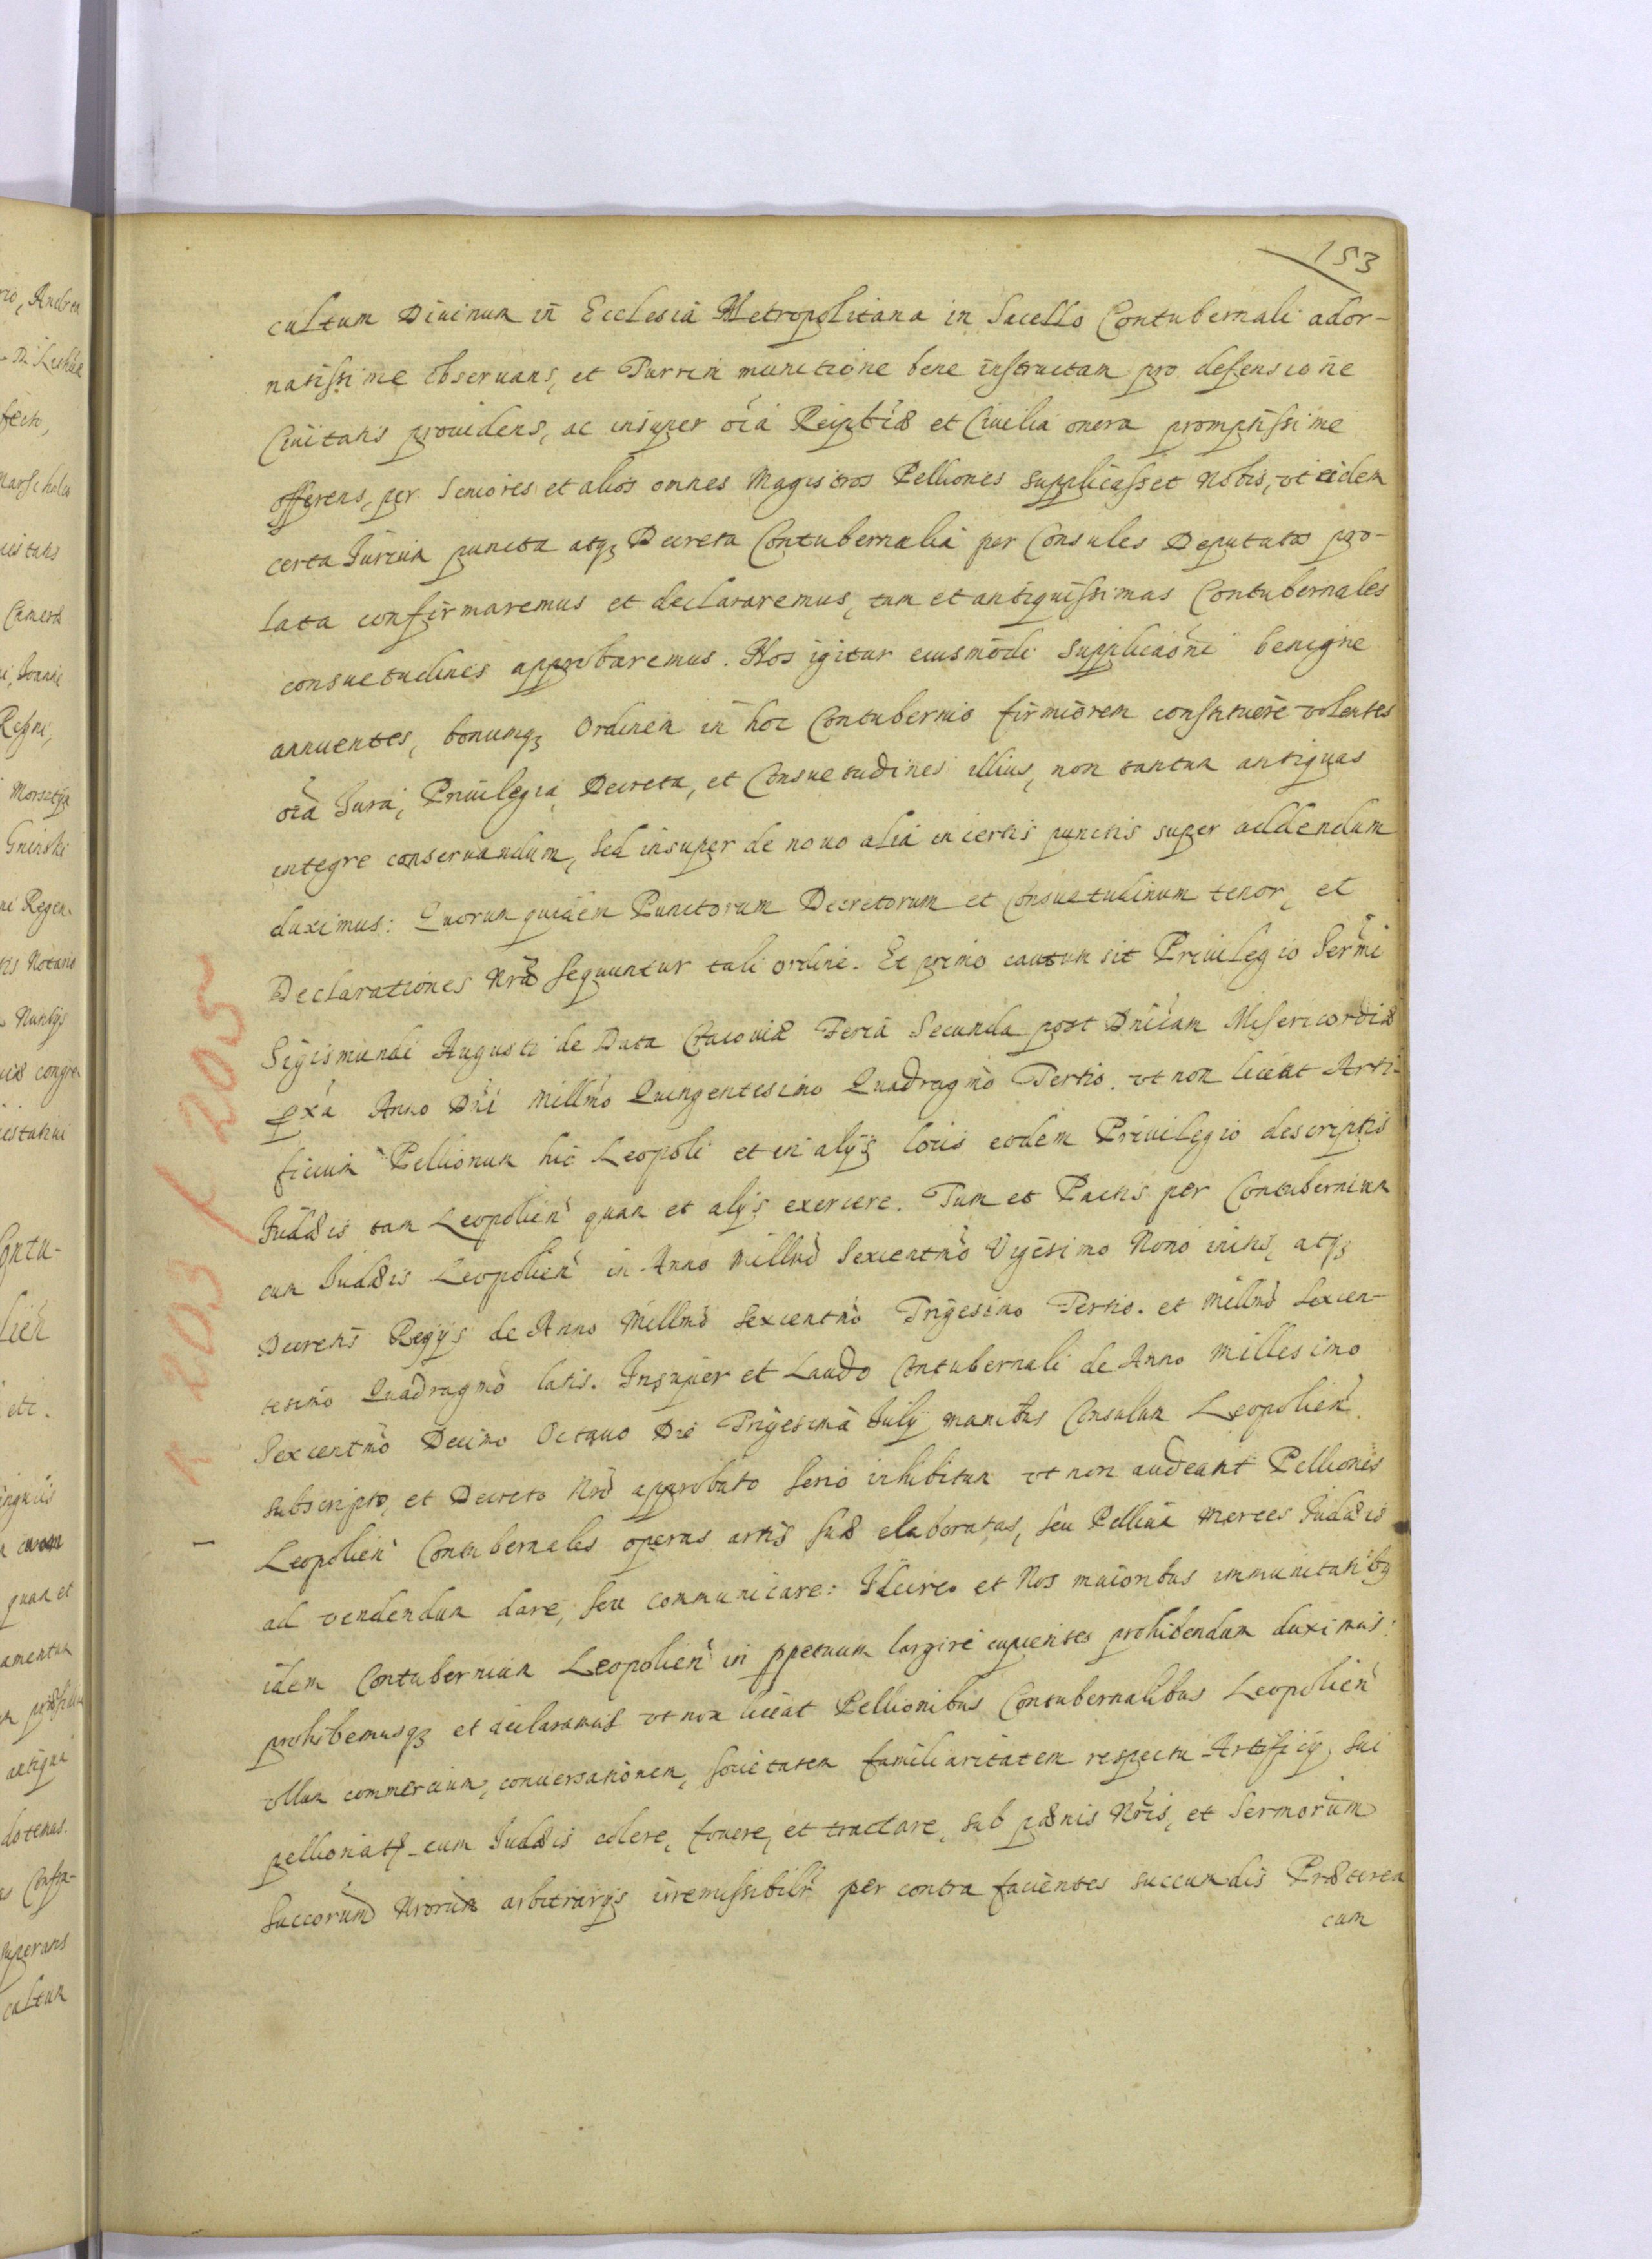 153
cultum Diuinum in Ecclesia Metropolitana in Sacello Contubernali ador-
natissime obseruans, et Turrim munitione bene instructam pro defensione
Ciuitatis prouidens, ac insuper oĩa Reipblĩcæ et Ciuilia onera promptissime
offerens, per Seniores et alios omnes Magistros Pelliones supplicasset Nobis, vt eidem
certa Jurium puncta atq3 Decreta Contubernalia per Consules Deputatos pro-
lata confirmaremus et declararemus, tum et antiquissimas Contubernales
consuetudines approbaremus. Nos igitur eiusmodi supplicaõni benigne
annuentes, bonumq3 Ordinem in hoc Contubernio firmiorem constituere volentes
oĩa Jura, Priuilegia, Decreta, et Consuetudines illius, non tantum antiquas
integre conseruandum, sed insuper de nouo alia in certis punctis super addendum
duximus: Quorum quidem Punctorum Decretorum et Consuetudinum tenor, et
Declarationes Nrã sequuntur tali ordine. Et primo cautum sit Priuilegio Sermĩ
Sigismundi Augusti de Data Cracouiæ Feria Secunda post Dnĩcam Misericordiæ
pxã Anno Dnĩ Millmõ Quingentesimo Quadragmõ Tertio. vt non liceat Arti-
ficium Pellionum hic Leopoli et in alijs locis eodem Priuilegio descriptis
Judæis tam Leopolien̄ quam et alijs exercere. Tum et Pactis per Contubernium
cum Judæis Leopolien̄ in Anno Millmõ Sexcentmõ Vigesimo Nono initis, atq3
Decretis Regijs de Anno Millmõ Sexcentmõ Trigesimo Tertio. et Millmõ Sexcen-
tesimo Quadragmõ latis. Insuper et Laudo Contubernali de Anno Millesimo
Sexcentmõ Decimo Octauo Die Trigesima July manibus Consulum Leopolien̄
subscripto, et Decreto Nrõ approbato serio inhibitum vt non audeant Pelliones
Leopolien̄ Contubernales operas artis suæ elaboratas, seu Pellium merces Judæis
ad vendendum dare, seu communicare: Idcirco et Nos maioribus immunitatibq3
idem Contubernium Leopolien̄ in ppetuum largire cupientes prohibendum duximus:
prohibemusq3 et declaramus vt non liceat Pellionibus Contubernalibus Leopolien̄
vllum commercium, conuersationem, societatem familiaritatem respectu Artificij sui
cum Judæis colere, fouere, et tractare, sub pænis Nrĩs, et Sermorum
Succorum Nrorum arbitrarijs irremissibilr̃ per contra facientes succumdis Præterea
cum
203 / 205